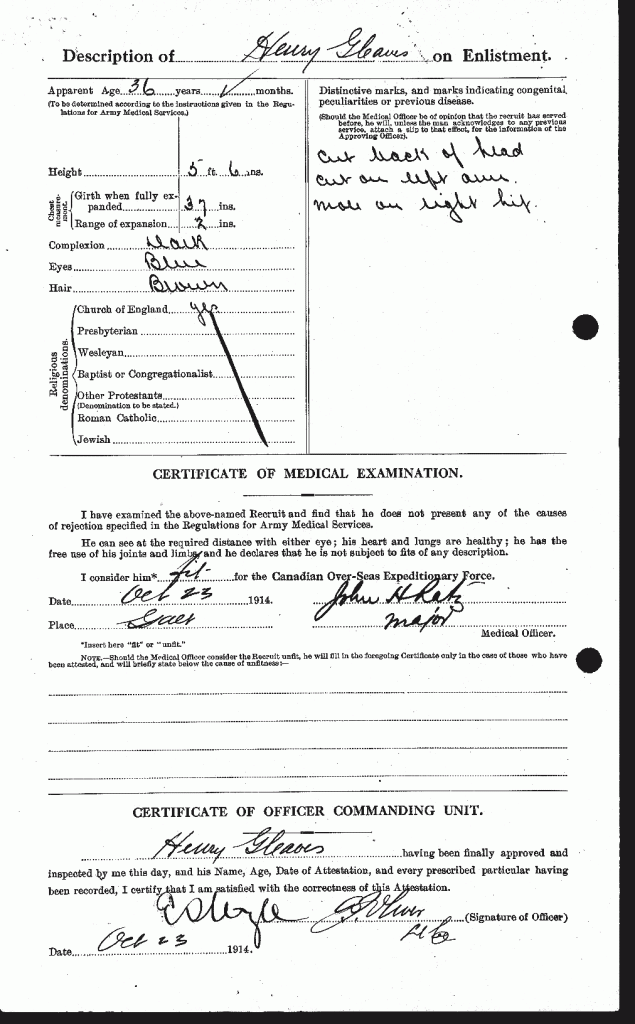 Description of Henry Gleaves on Enlistment.
Apparent Age 36 years months.
(To be determined according to the instructions given in the Regulations for Army Medical Services.)
Height 5 ft. 6 ins.
Chest measurement.
Girth when fully expanded 37 ins.
Range of expansion 2 ins.
Complexion Dark
Eyes Blue
Hair Brown
Religious denominations.
Church of England yes
Presbyterian
Wesleyan
Baptist or Congregationalist
Other Protestants
(Denomination to be stated.)
Roman Catholic
Jewish
Distinctive marks, and marks indicating congenital
peculiarities or previous disease.
(Should the Medical Officer be of opinion that the recruit has served
before, he will, unless the man acknowledges to any previous
service, attach a slip to that effect, for the information of the
Approving Officer).
cut back of head
cut on left arm.
mole on right hip.
CERTIFICATE OF MEDICAL EXAMINATION.
I have examined the above-named Recruit and find that he does not present any of the causes
of rejection specified in the Regulations for Army Medical Services.
He can see at the required distance with either eye; his heart and lungs are healthy; he has the
free use of his joints and limbs, and he declares that he is not subject to fits of any description.
I consider him* fit for the Canadian Over-Seas Expeditionary Force.
Date Oct 23 1914. John H Ratz
Place Galt Major
Medical Officer.
*Insert here "fit" or "unfit."
NOTE.—Should the Medical Officer consider the Recruit unfit, he will fill in the foregoing Certificate only in the case of those who have
been attested, and will briefly state below the cause of unfitness:—
CERTIFICATE OF OFFICER COMMANDING UNIT.
Henry Gleaves having been finally approved and
inspected by me this day, and his Name, Age, Date of Attestation, and every prescribed particular having
been recorded, I certify that I am satisfied with the correctness of this Attestation.
(Signature of Officer)
Date Oct 23 1914.